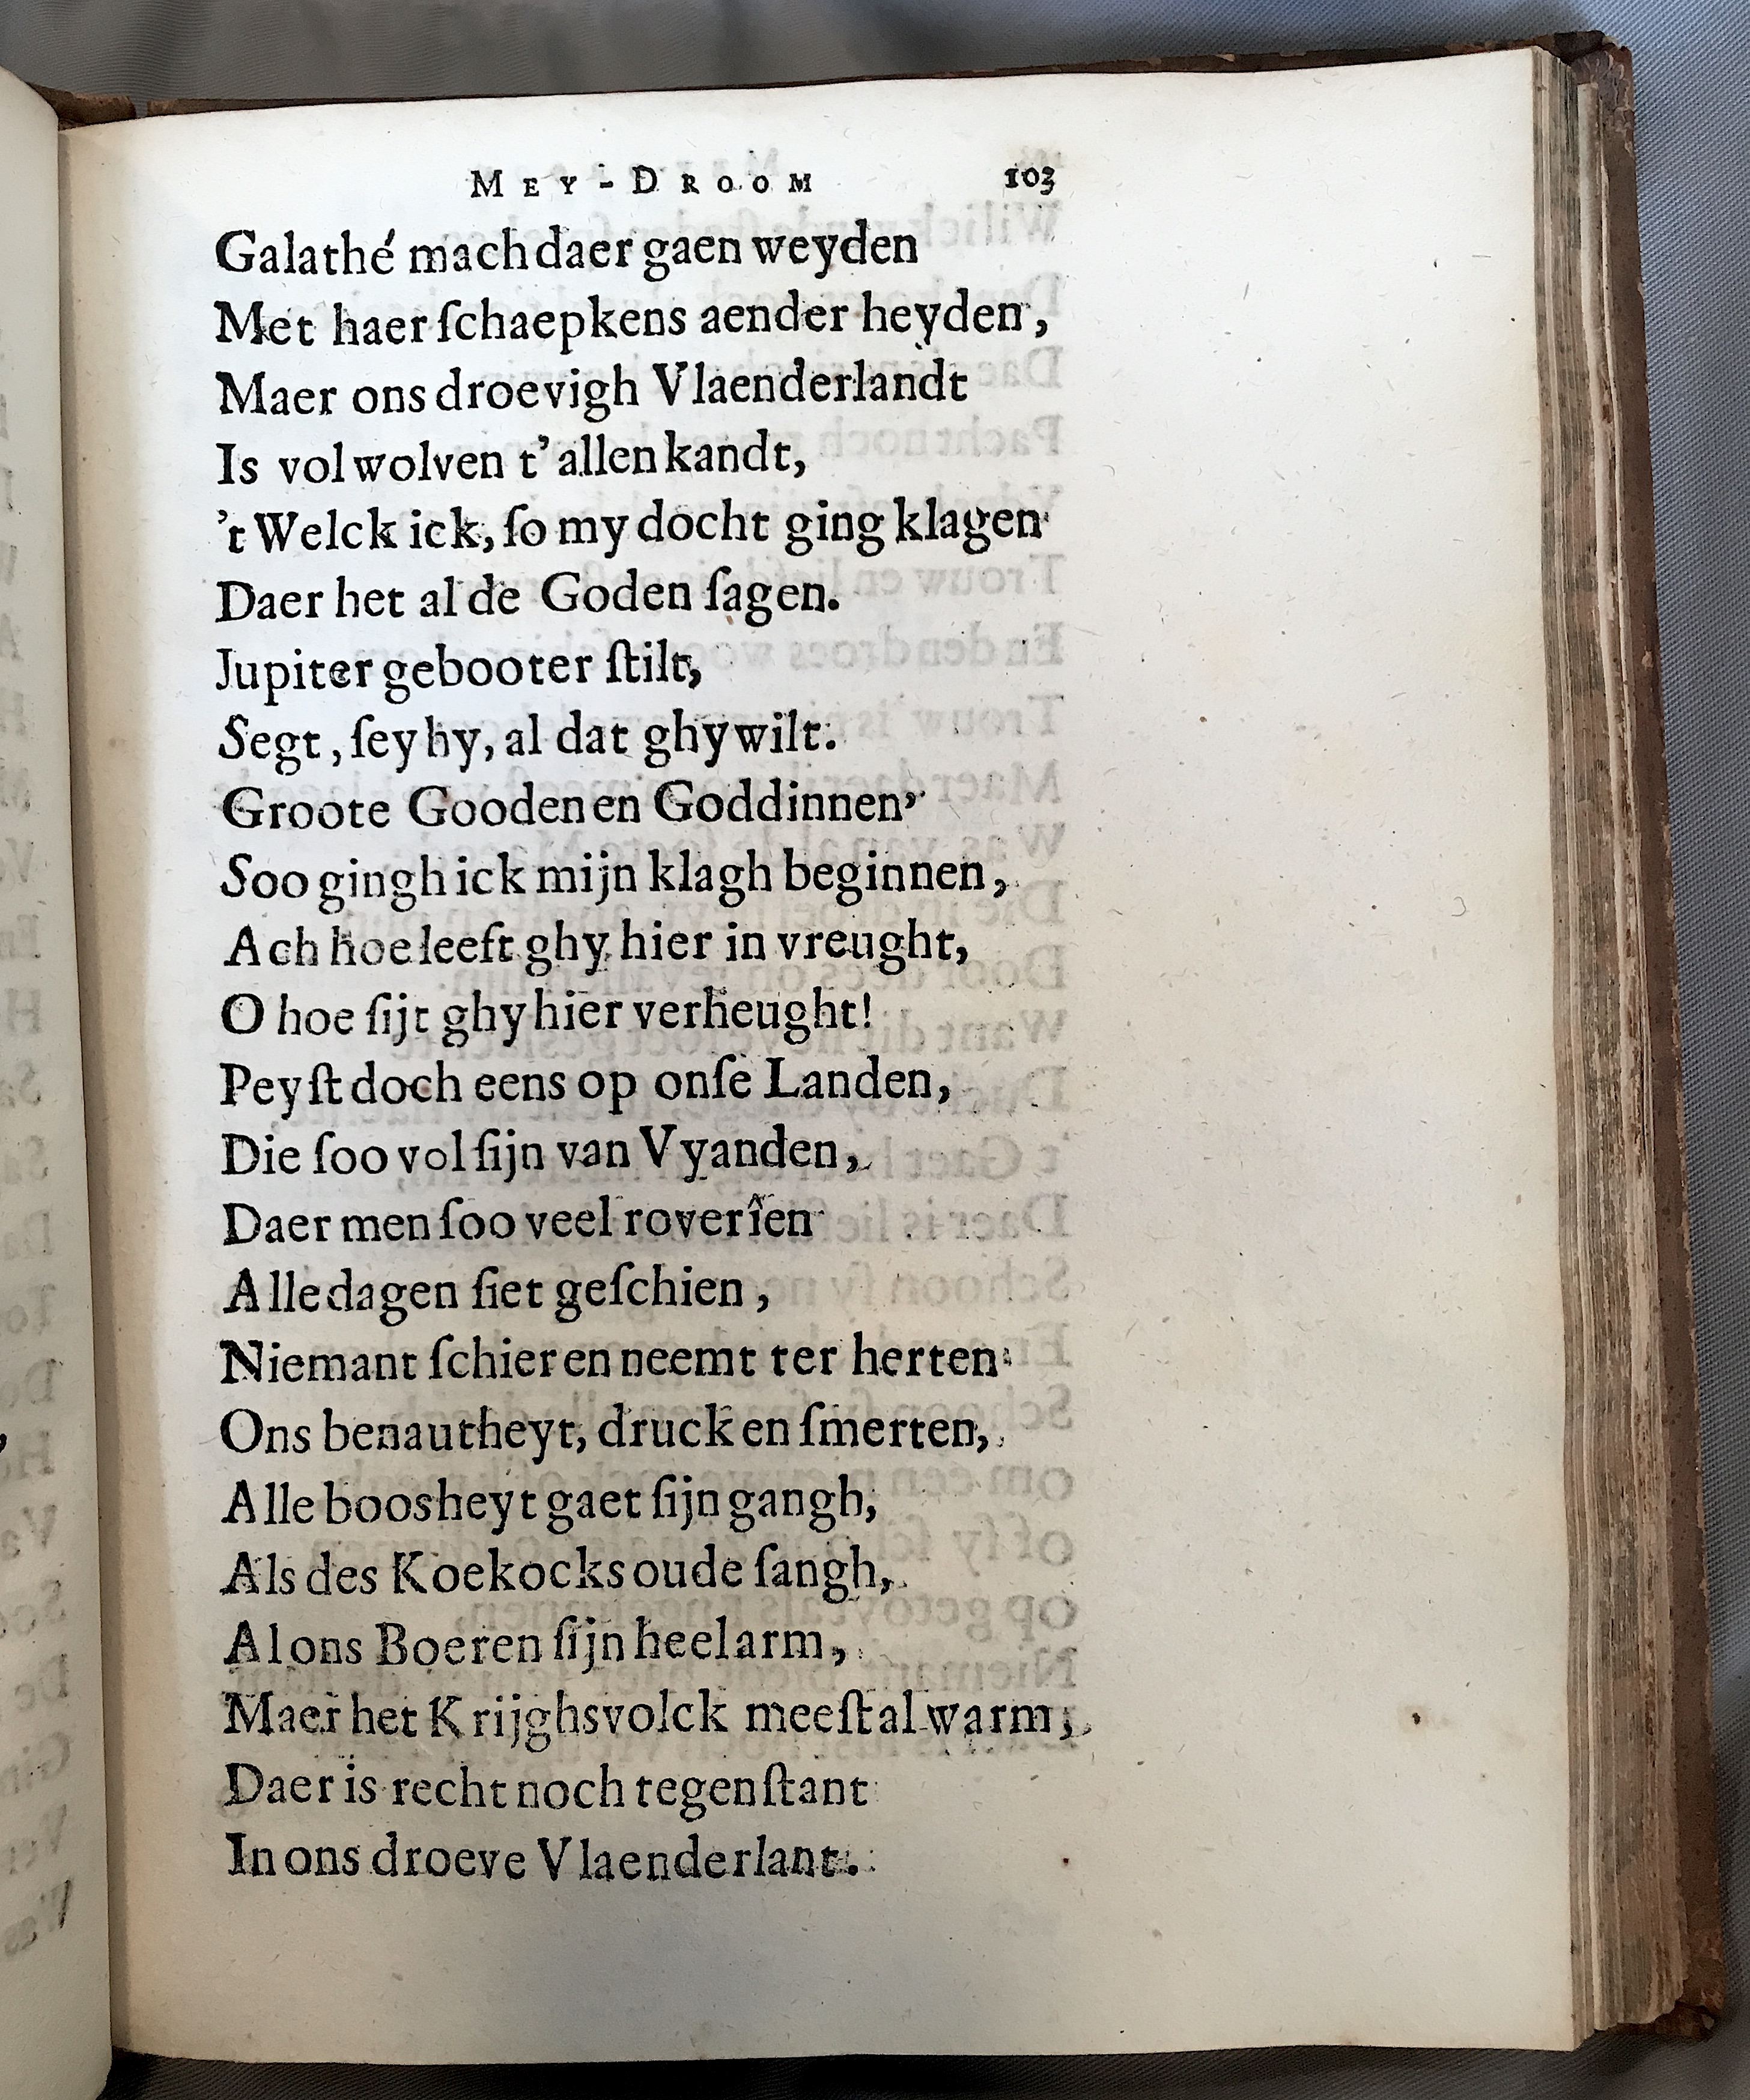 MEY-DROOM 103
Galathé mach daer gaen weyden
Met haer ſchaepkens aender heyden,
Maer ons droevigh Vlaenderlandt
Is vol wolven t'allen kandt,
't Welck ick, ſo my docht ging klagen
Daer het al de Goden ſagen.
Jupiter gebooter ſtilt,
Segt, ſey hy, al dat ghy wilt.
Groote Gooden en Goddinnen,
Soo gingh ick mijn klagh beginnen,
Ach hoe leeft ghy hier in vreught,
O hoe ſijt ghy hier verheught!
Peyſt doch eens op onſe Landen,
Die ſoo vol ſijn van Vyanden,
Daer men ſoo veel roverîen
Alle dagen ſiet geſchien,
Niemant ſchier en neemt ter herten
Ons benautheyt, druck en ſmerten,
Alle boosheyt gaet ſijn gangh,
Als des Koekocks oude ſangh,
Al ons Boeren ſijn heel arm,
Maer het Krijghsvolck meeſtal warm,
Daer is recht noch tegenſtant
In ons droeve Vlaenderlant.